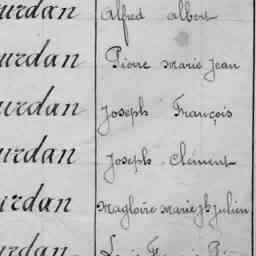 urdan Alfred Albert
urdan Pierre Marie Jean
urdan Joseph François
urdan Joseph Clément
urdan Magloire Marie Jh Julien
urdan Louis François